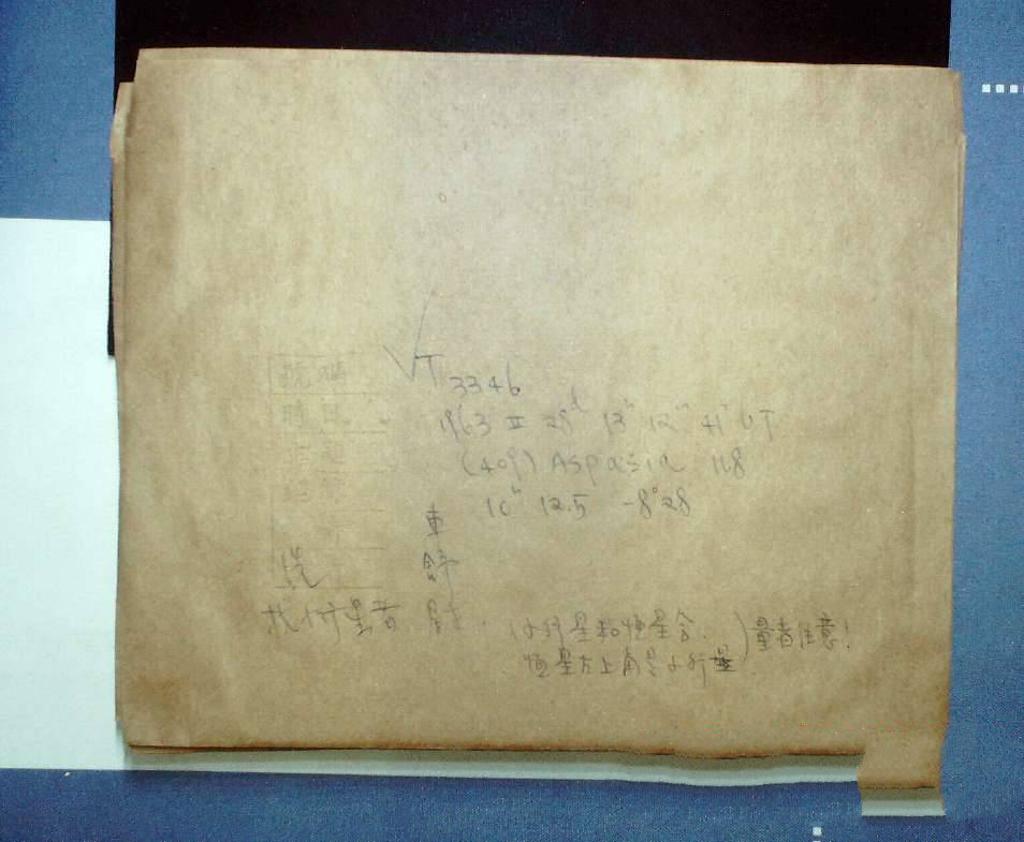 號碼
時日
VT 3346
1963 II 28ᵈ 13ʰ 12ᵐ 41ˢ UT
(409) Aspasia 11.8
10ʰ 12.5 -8°28
找行星者
(小行星和恒星合.
恒星左上角是小行星) 量者注意!